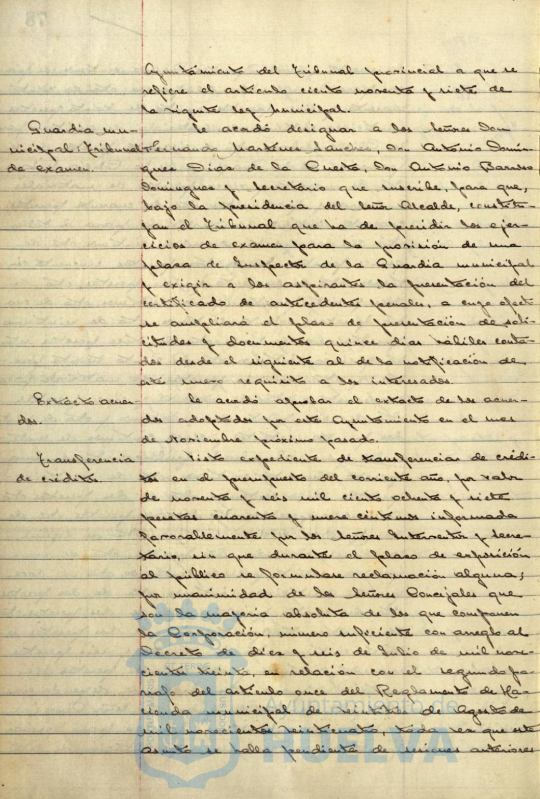 Ayuntamiento del Tribunal provincial a que se
refiere el artículo ciento noventa y siete de
la vigente ley Municipal.
Guardia mu-
nicipal: Tribunal
de examen.
Se acordó designar a los Señores Don
Fernando Martinez Sanchez, Don Antonio Domin-
guez Diaz de la Cuesta, Don Antonio Barroso
Dominguez y Secretario que suscribe, para que,
bajo la presidencia del Señor Alcalde, constitu-
yan el Tribunal que ha de presidir los ejer-
cicios de examen para la provisión de una
plaza de Inspector de la Guardia municipal
y exigir a los aspirantes la presentación del
certificado de antecedentes penales, a cuyo efecto
se ampliará el plazo de presentación de soli-
citudes y documentos quince dias hábiles conta-
dos desde el siguiente al de la notificación de
este nuevo requisito a los interesados.
Extracto acuer-
dos.
Se acordó aprobar el extracto de los acuer-
dos adoptados por este Ayuntamiento en el mes
de Noviembre próximo pasado.
Transferencia
de créditos.
Visto expediente de transferencias de crédi-
tos en el presupuesto del corriente año, por valor
de noventa y seis mil ciento ochenta y siete
pesetas cuarenta y nueve céntimos informada
favorablemente por los Señores Interventor y Secre-
tario, sin que durante el plazo de exposición
al público se formulase reclamación alguna;
por unanimidad de los Señores Concejales que
son la mayoría absoluta de los que componen
la Corporación, número suficiente con arreglo al
Decreto de diez y seis de Julio de mil nove-
cientos treinta, en relación con el segundo pa-
rrafo del artículo once del Reglamento de Ha-
cienda municipal de veintitres de Agosto de
mil novecientos veinticuatro, toda vez que este
asunto se halla pendiente de sesiones anteriores
Ayuntamiento de
HUELVA